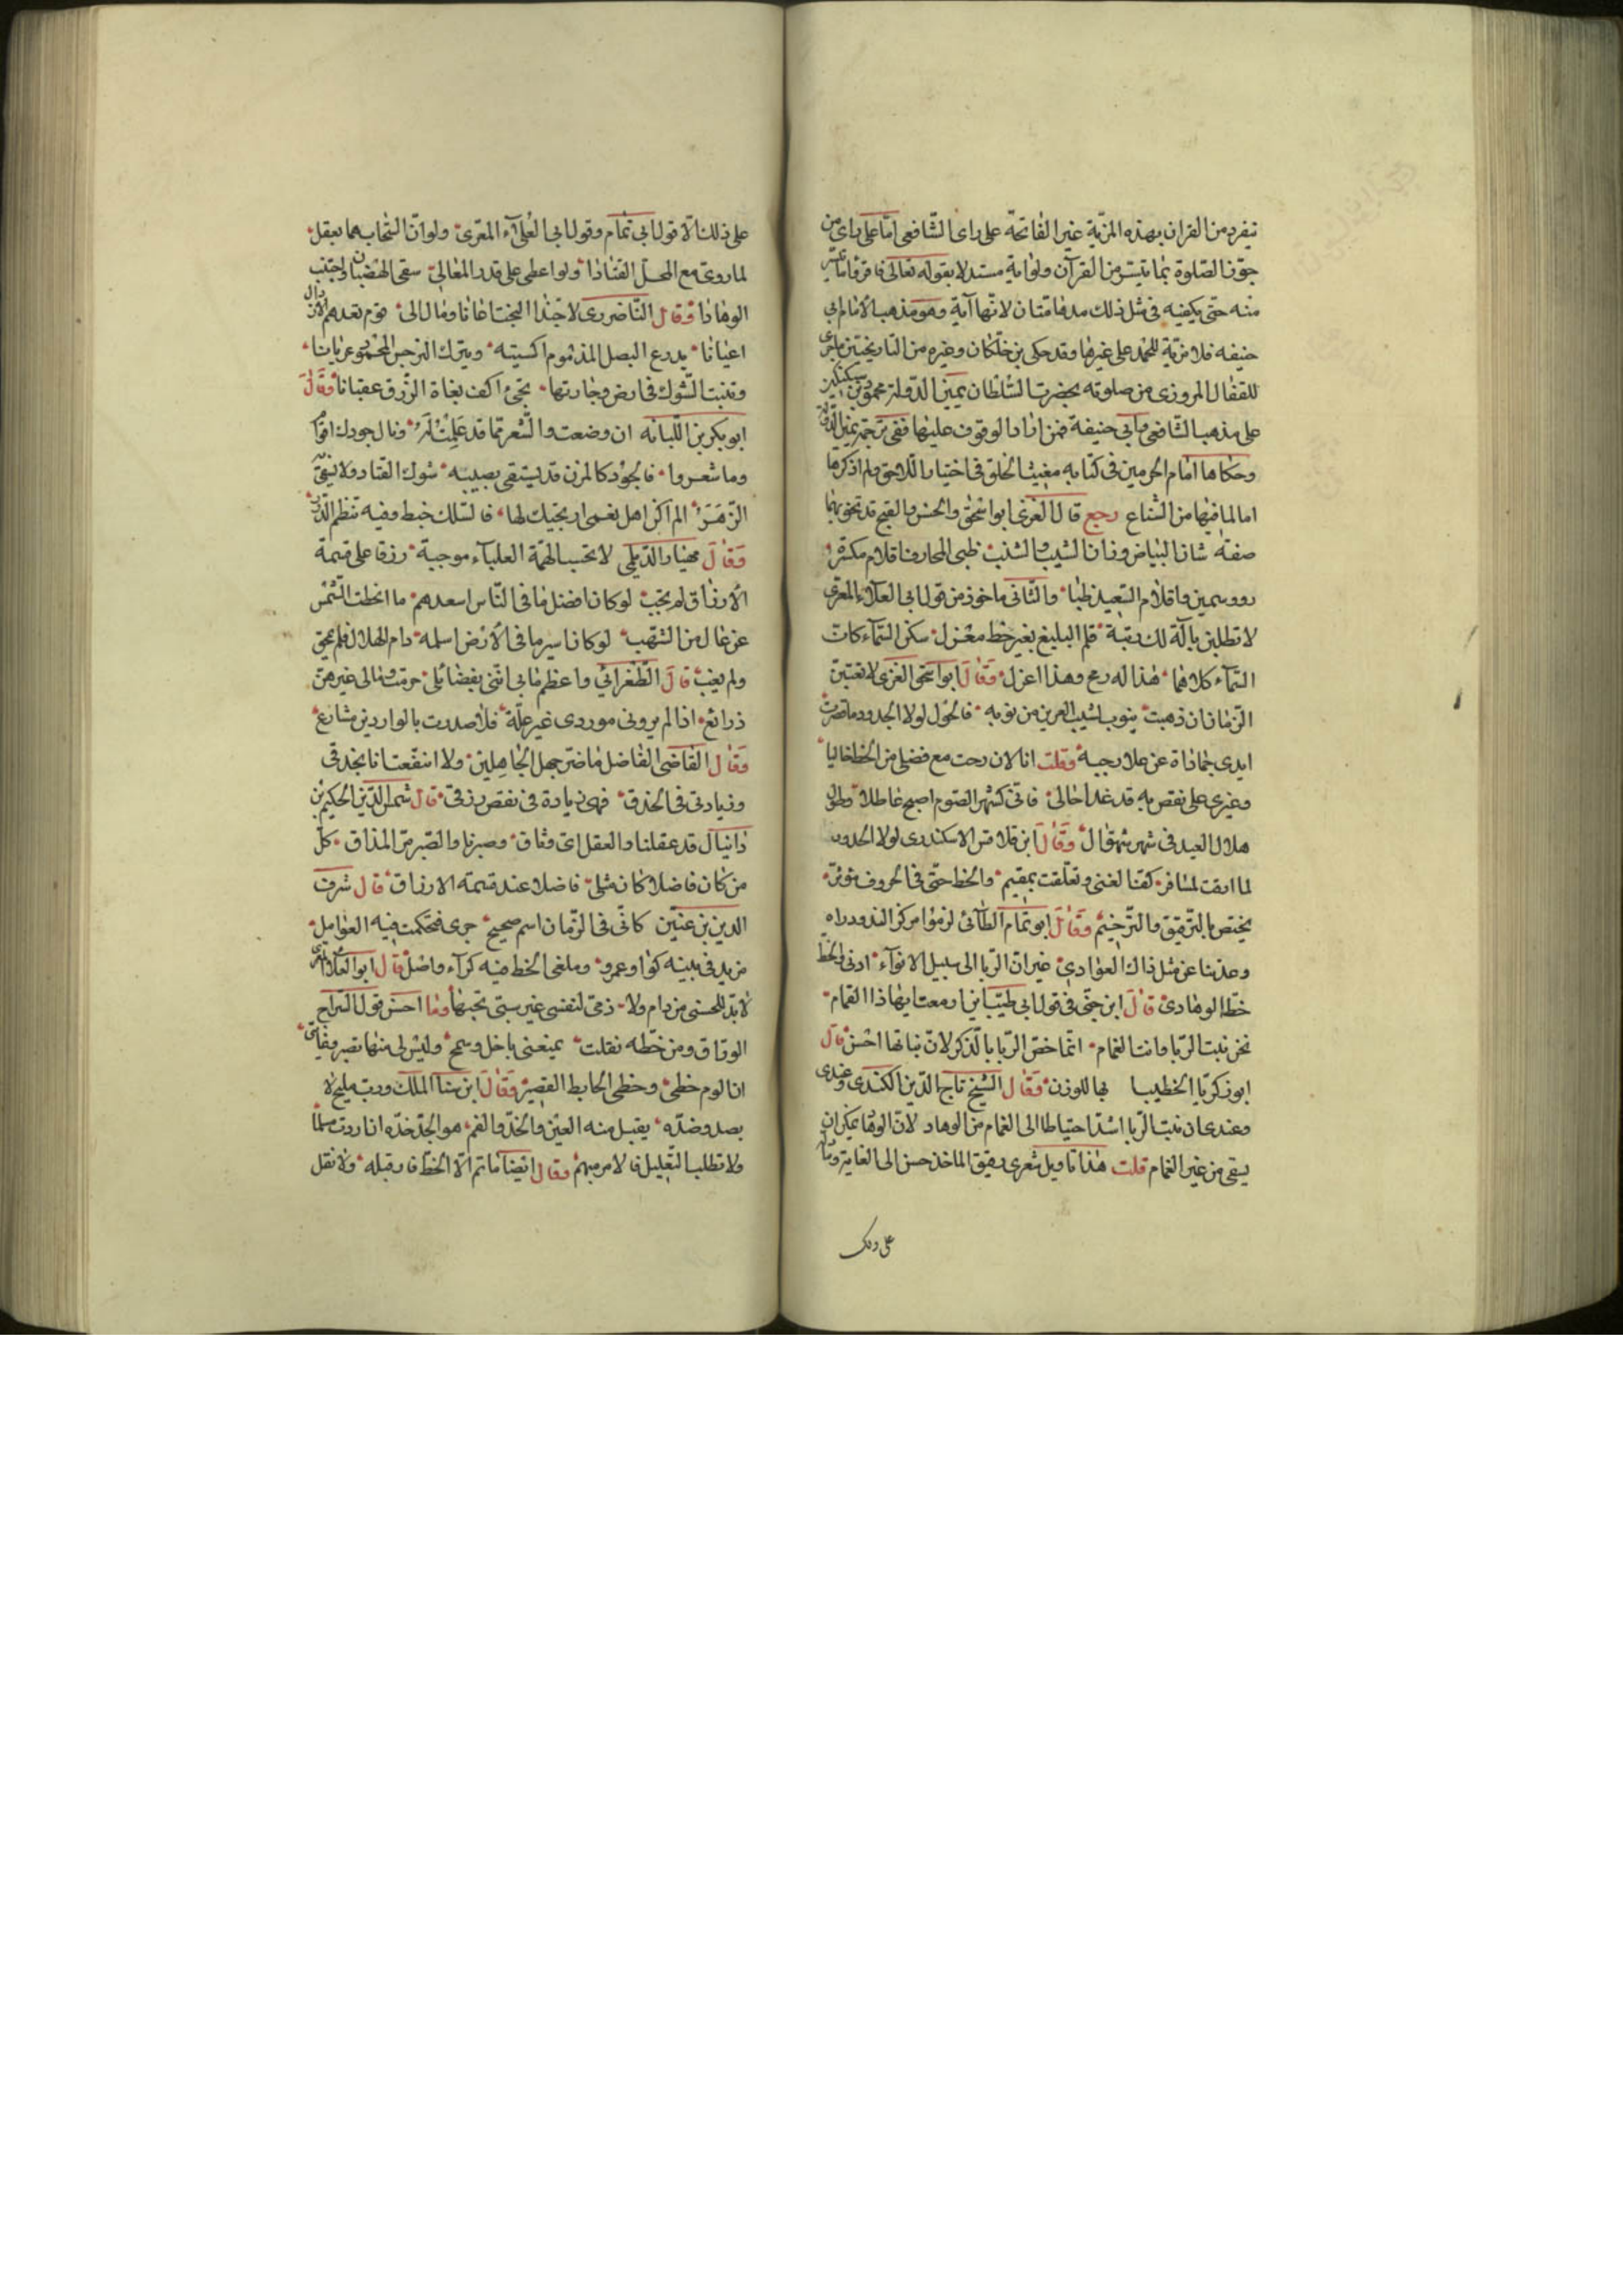 تنفرد من القران بهذه المزية غير الفاتحة على راى الشافعى امّا على راى من
جوّز الصلوة بما تيسّر من القرآن ولو اية مستدلا بقوله تعالى فاقرؤا ما تيسّر
منه حتى يكفيه فى مثل ذلك مدهامتان لانّها آية وهو مذهب الامام ابى
حنيفه فلا مزية للحمد على غيرها وقد حكى بن خلكان وغيره من التاريخيين ما جرى
للقفال المروزى من صلوته بحضرت السّلطان يمين الدّولة محمود بن سبكتكين
على مذهب الشافعى وابى حنيفة فمن اراد الوقوف عليها ففى ترجمة يمين الدّولة
وحكاها امام الحرمين فى كتابه مغيث الخلق فى اختيار الاحق ولم اذكرها
امّا لما فيها من الشناع رجع قال الغزى ابو اسحٰق والحسن والقبح قد تحويهما
صفة شان البياض وزان الشيب والشنب ظبى المحارف اقلام مكسّرة
رووسهن واقلام السّعيد ظبا والثّانى ماخوذ من قول ابى العلاء المعرّى
لا تطلبن بآلة لك رتبة قلم البليغ بغير خط مغزل سكن السّماء كان
السّماء كلاهما هٰذا له رمح وهذا اعزل وَقَالَ ابو اسحٰق الغزى لا تعتبن
الزمان ان ذهبت بنوب لسيب العرين من نوبه فالحول لولا الجدود ما قصرت
ايدى جماداة عن علا رجبه وقلت انا لان رحت مع فضلى من الحظ خاليا
وغيرى على نقص به قد غدا حالى فانّى كشهر الصّوم اصبح عاطلا وطوق
هلال العيد فى شهر شوّال وَقَالَ ابن قلاقس الاسكندرى لولا الجدود
لما ارتقت لمسافر كفّ الغنى وتعلّقت بمقيم والحظ حتى فى الحروف مؤثر
يختص بالترقيق والترخيم وَقَالَ ابو تمام الطّائى لزموا مركز الندى وذراه
وعدتنا عن مثل ذاك العوادى غير ان الرّبا الى سبيل الانوآء ادنى والحظّ
حظّ الوهادى قَالَ ابن جنّى فى قول ابى طيّب اين ازمعت ايهاذا الهمام
نحن نبت الرّبا وانت الغمام انّما خصّ الرّبا بالذكر لانّ نباتها احسن قال
ابو زكريّا الخطيب بها للوزن وَقَالَ الشيخ تاج الدّين الكندى وعندى
وعندى ان نبت الرّبا اشدّ احتياطا الى الغمام من الوهاد لانّ الوهاد يمكن ان
يسقى من غير الغمام قلت هٰذا تاويل شعرى دقيق الماخذ حسن الى الغاية ويدل
على ذلك
على ذلك الّا قول ابى تمام وقول ابى العلآء المعرّى ولو انّ السّحاب هما بعقل
لما روّى مع المحلّ القتادا ولو اعطى على قدر المعالى سقى الهضبان واجتنب
الوهادا وَقَال النّاضررى لا حبّذا البخت اغانا ومال الى قوم تعدهم الانذال
اعيانا يدرع البصل المذموم اكسيته ويترك النرجس المخموم عريانا
وتنبت الشّوك فى ارض وجارتها تجى اكف بغاة الرّزق عقيانا وَقَالَ
ابو بكر بن اللّبانه ان وضعت والشّعر ممّا قد علمت له ونال جودك اقوام
وما شعروا فالجود كالمزن قد يستقى بصيّبه شوك القتاد ولا يسقى
الزّهر الم اكن اهل نعمى ارتجيك لها فالسّلك خيط وفيه تنظم الدّرر
وَقَالَ مهيار الدّيلمى لا تحسب الهمّة العلياء موجبة رزقا على قسمة
الارزاق لم يجب لو كان افضل ما فى النّاس اسعدهم ما انحطت الشّمس
عن عال من الشّهب لو كان اسير ما فى الارض اسلمه دام الهلال فلم يمحق
ولم يغب قَالَ الطّغرائى واعظم ما بى انّنى بفضائلى حرمت ومالى غيرهنّ
ذرائع اذا لم يرونى موردى غير غلّة فلا صدرت بالواردين مشارع
وَقَال القاضى الفاضل ما ضرّ جهل الجاهلين ولا انتفعت انا بحذقى
وزيادتى فى الحذق فهى زيادة فى نقص رزقى قال شمس الدّين الحكيم بن
دانيال قد عقلنا والعقل اىّ وثاق وصبرنا والصّبر مرّ المذاق كلّ
من كان فاضلا كان مثلى فاضلا عند قسمة الارزاق قال شرف
الدين بن عنين كانّى فى الزّمان اسم صحيح جرى فتحكمت فيه العوامل
مزيد فى بنيه كواو عمرو وملغى الحظ فيه كرآء واصل قال ابو العلآء المعرّى
لا بدّ للحسنى من ذام ولا ذمى لنفسى غير سيّئ بختها وما احسن قول السّراج
الورّاق ومن خطّه نقلت يمنعنى باخل وسمح وليس لى منهما نصير وفاتى
ان الوم حظى وحظى الحايط القصير وَقَالَ ابن سنآ الملك ورب مليح لا
بصد وضدّه يقبل منه العين والخدّ والفم هو الجدّ خذه ان اردت مسلّما
ولا تطلب التّعليل فالامر مبهم وقال ايضا ما تم الّا الحظ فارقبله ولا تقل